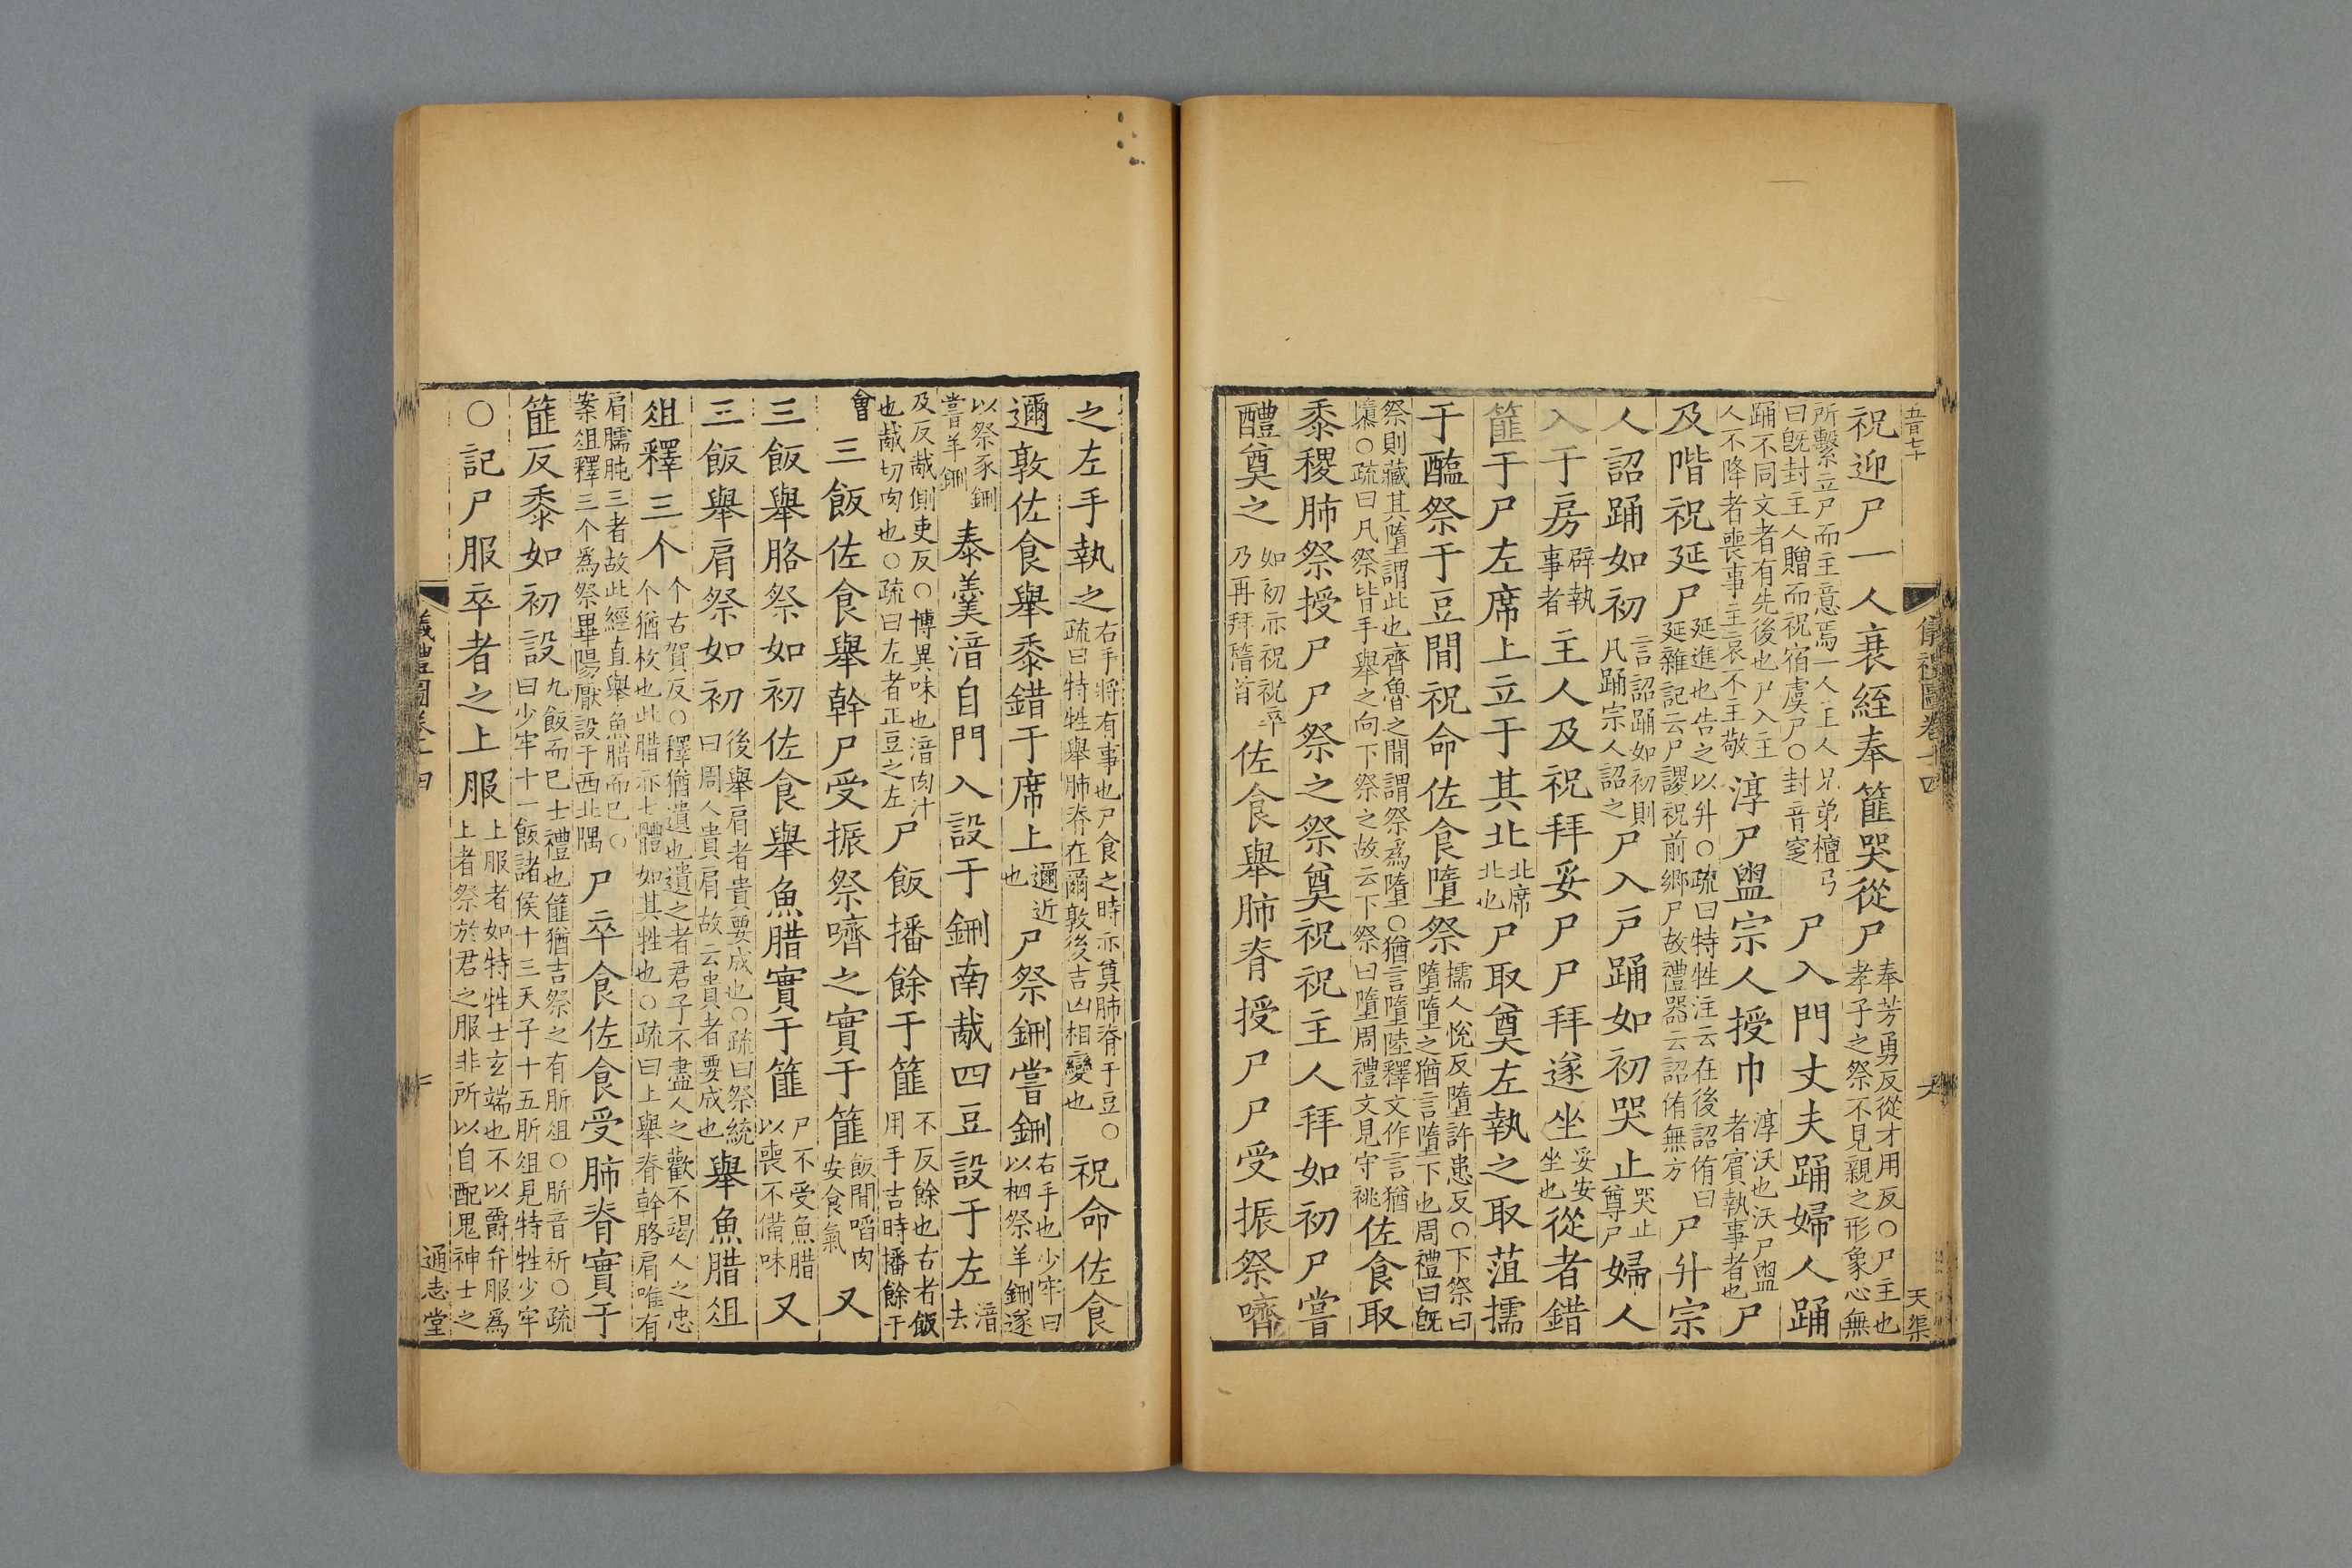 五百七十
儀禮圖卷十四
天渠
祝迎尸一人衰絰奉篚哭從尸奉芳勇反從才用反○尸主也孝子之祭不見親之形象心無
所繫立尸而主意焉一人主人兄弟檀弓曰旣封主人贈而祝宿虞尸○封音窆尸入門丈夫踊婦人踊
踊不同文者有先後也尸入主人不降者喪事主哀不主敬淳尸盥宗人授巾淳沃也沃尸盥者賓執事者也尸
及階祝延尸延進也告之以升○疏曰特牲注云在後詔侑曰延雜記云尸謖祝前鄉尸故禮器云詔侑無方尸升宗
人詔踊如初言詔踊如初則凡踊宗人詔之尸入戶踊如初哭止哭止尊尸婦人
入于房辟執事者主人及祝拜妥尸尸拜遂坐妥安坐也從者錯
篚于尸左席上立于其北北席北也尸取奠左執之取菹擩
于醢祭于豆間祝命佐食墮祭擩人悅反墮許恚反○下祭曰墮墮之猶言墮下也周禮曰旣
祭則藏其墮謂此也齊魯之間謂祭爲墮○猶言墮陸釋文作言猶隳○疏曰凡祭皆手舉之向下祭之故云下祭曰墮周禮文見守祧佐食取
黍稷肺祭授尸尸祭之祭奠祝祝主人拜如初尸嘗
醴奠之如初亦祝祝卒乃再拜稽首佐食舉肺脊授尸尸受振祭嚌
之左手執之右手將有事也尸食之時亦奠肺脊于豆○疏曰特牲舉肺脊在爾敦後吉凶相變也祝命佐食
邇敦佐食舉黍錯于席上邇近也尸祭鉶嘗鉶右手也少牢曰以柶祭羊鉶遂
以祭豕鉶嘗羊鉶泰羹湆自門入設于鉶南胾四豆設于左湆去
及反胾側吏反○博異味也湆肉汁也胾切肉也○疏曰左者正豆之左尸飯播餘于篚不反餘也古者飯用手吉時播餘于
會三飯佐食舉幹尸受振祭嚌之實于篚飯間啗肉安食氣又
三飯舉胳祭如初佐食舉魚腊實于篚尸不受魚腊以喪不備味又
三飯舉肩祭如初後舉肩者貴要成也○疏曰祭統曰周人貴肩故云貴者要成也舉魚腊俎
俎釋三个个古賀反○釋猶遺也遺之者君子不盡人之歡不竭人之忠个猶枚也此腊亦七體如其牲也○疏曰上舉脊幹胳肩唯有
肩臑肫三者故此經直舉魚腊而已○案俎釋三个爲祭畢陽厭設于西北隅尸卒食佐食受肺脊實于
篚反黍如初設九飯而已士禮也篚猶吉祭之有肵俎○肵音祈○疏曰少牢十一飯諸侯十三天子十五肵俎見特牲少牢
○記尸服卒者之上服上服者如特牲士玄端也不以爵弁服爲上者祭於君之服非所以自配鬼神士之
儀禮圖卷十四
通志堂